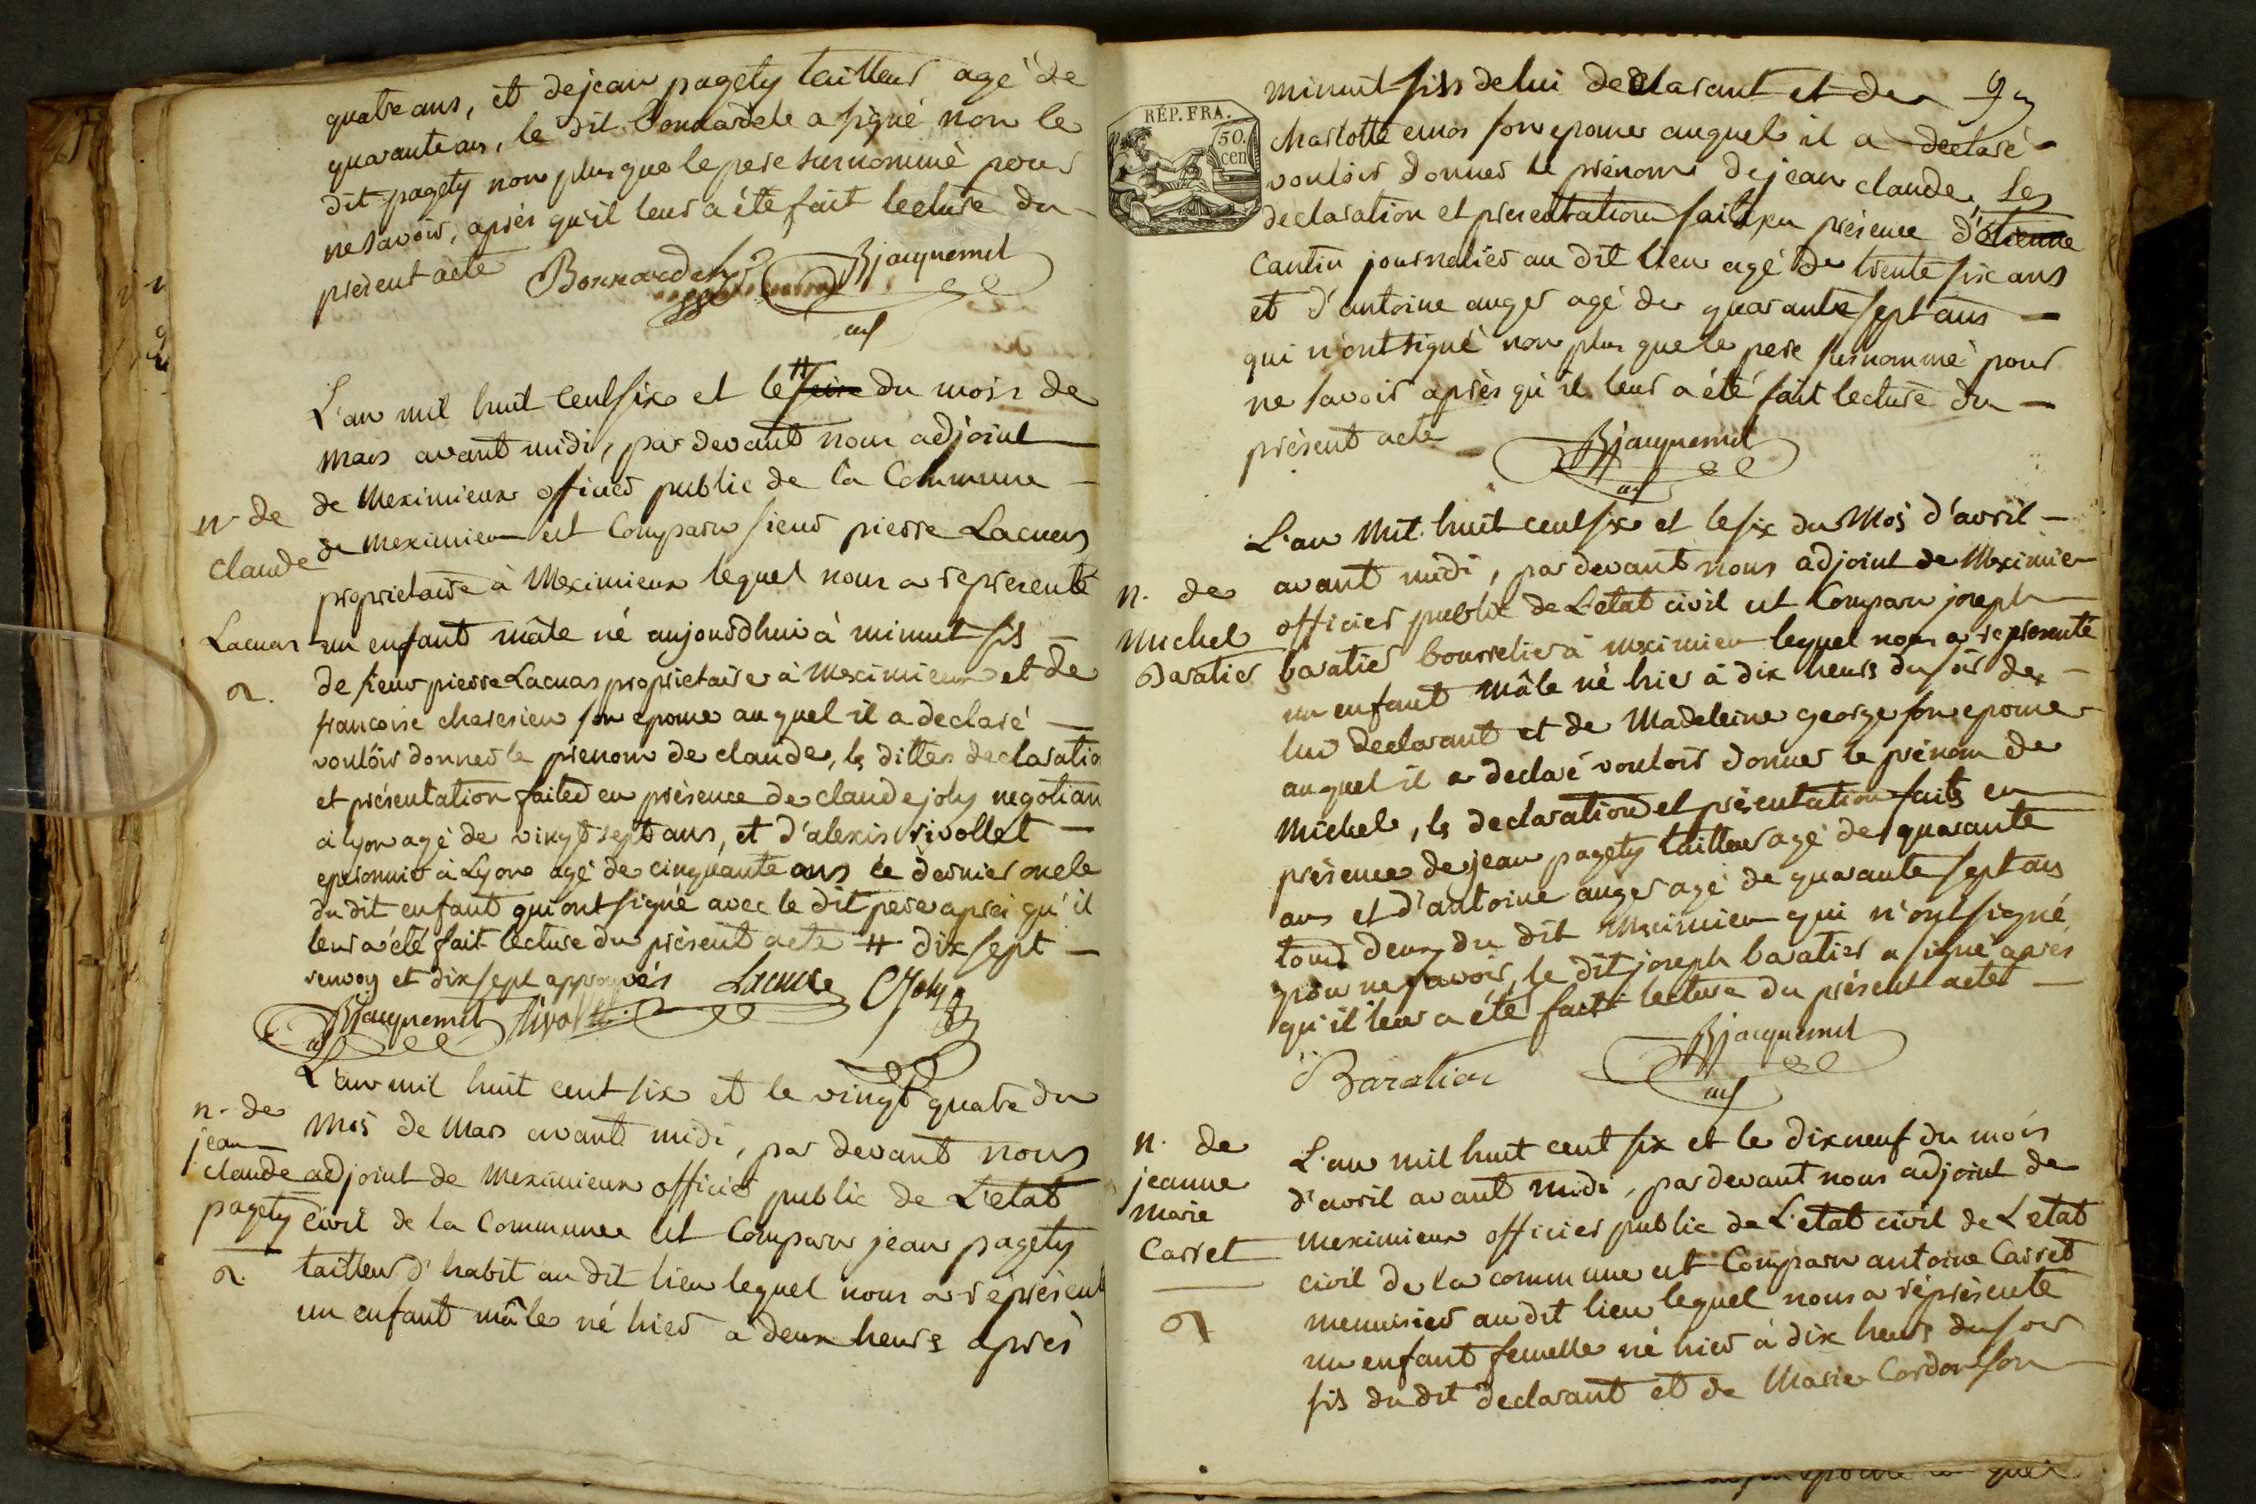 quatre ans, et de jean pagety tailleur agé de
quarante ans, le dit Bonnardel a signé non le
dit pagety non plus que le pere surnommé pour
ne savoir, après qu'il leur a été fait lecture du
présent acte
Bonnardel Bjacquemet
adj
L'an mil huit cent six et le # seize du mois de
mars avant midi, par devant nous adjoint
de Meximieux officier public de la Commune
de meximieux est Comparu sieur pierre Lacuas
proprietaire à Meximieux lequel nous a representé
un enfant mâle né aujourdhui à minuit fils
de sieur pierre Lacuas proprietaire à Meximieux et de
francoise son epouse au quel il a declaré
vouloir donner le prenom de claude, ls dittes declaratio
et présentation faites en présence de claude joly negotian
a lyon agé de vingt sept ans, et d'alexis rivollet
à Lyon agé de cinquante ans ce dernier oncle
du dit enfant qui ont signé avec le dit pere aprei qu'il
leur a été fait lecture du présent acte # dix sept
renvoy et dix sept approuvés Lacuas CJoly
Bjacquemet Rivollet
adj
n. de
claude
Lacuas
L'an mil huit cent six et le vingt quatre du
mois de Mars avant midi, par devant nous
adjoint de meximieux officier public de L'etat
civil de la Commune est Comparu jean pagety
tailleur d'habit au dit lieu lequel nous a représent
un enfant mâle né hier a deux heurs après
n. de
jean
claude
pagety
RÉP. FRA.
50.
cen
9
minuit fils de lui declarant et de
charlotte son epouse auquel il a declaré
vouloir donner le prénom de jean claude, Les
declaration et presentation faits en présence d'étienne
Cantin journalier au dit lieu agé de trente six ans
et d'antoine auger agé de quarante sept ans
qui n'ont signé non plus que le pere surnommé pour
ne savoir après qu'il leur a été fait lecture du
présent acte
Bjacquemet
adj
L'an mil huit cent six et le six du Mois d'avril
avant midi, par devant nous adjoint de Meximie
officier public de L'etat civil est Comparu joseph
baratier bourrelier à meximieu lequel nous a représenté
un enfant mâle né hier à dix heurs du soir de
lui declarant et de Madeleine george son epouse
au quel il a declaré vouloir donner le prénom de
Michel, ls declaration et présentation faits en
présence de jean pagety tailleur agé de quarante
ans et d'antoine auger agé de quarante sept ans
tous deux du dit Meximieu qui n'ont signé
pour ne savoir, le dit joseph baratier a signé après
qu'il leur a été fait lecture du présent acte
Bjacquemet
Baratier
adj
n. de
Michel
Baratier
L'an mil huit cent six et le dix neuf du mois
d'avril avant midi, par devant nous adjoint de
meximieux officier public de L'etat civil de L'etat
civil de la commune est Comparu antoine Carret
menuisier au dit lieu lequel nous a réprésenté
un enfant femelle né hier à dix heurs du soir
fils du dit declarant et de Marie Cordon son
n. de
jeanne
marie
Carret